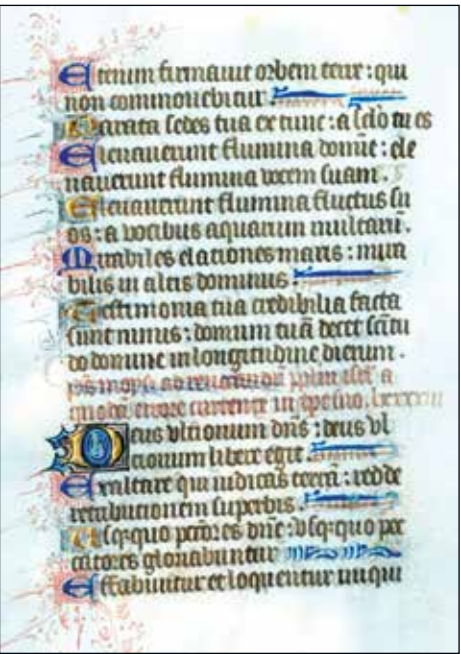 Etenim firmauit orbem terre : qui
non commouebitur .
Parata sedes tua ex tunc : a sclo tu es
Eleuauerunt flumina domie : ele
uauerunt flumina uocem suam .
Eleuauerunt flumina fluctus su
os : a uocibus aquarum multarū .
Mirabiles elationes maris : mira
bilis in altis dominus .
Testimonia tua credibilia facta
sunt nimis : domum tuā decet scītu
do domine in longitudine dierum .
Deus vltionum dns : deus vl
tionum libere egit .
Exaltare qui iudicas terrā : redde
retributionem superbis .
Vsq;quo pctōres dne : vsq;quo pec
catores gloriabuntur
Effabuntur et loquentur iniqui